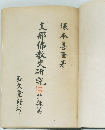 塚本善隆著
支那佛教史研究 北魏篇
弘文堂書房